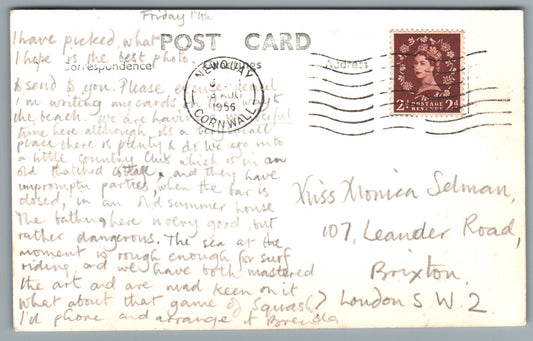 Friday 17th
I have picked what
I hope is the best photo.
to send to you. Please excuse pencil
I'm writing my cards on
the beach. We are having a
time here although, its a very small
place there is plenty to do. We go into
a little country Club which is in an
old thatched cottage, and they have
impromptu parties, when the bar is
closed, in an old summer house
The bathing here is very good, but
rather dangerous. The sea at the
moment is rough enough for surf
riding, and we have both mastered
the art and are mad keen on it
What about that game of Squash?
I'll phone and arrange it Brenda
POST CARD
Correspondence
Address
NEWQUAY
AUG
1956
CORNWALL
2D POSTAGE REVENUE 2D
Miss Monica Selman,
107, Leander Road,
Brixton,
London S.W.2